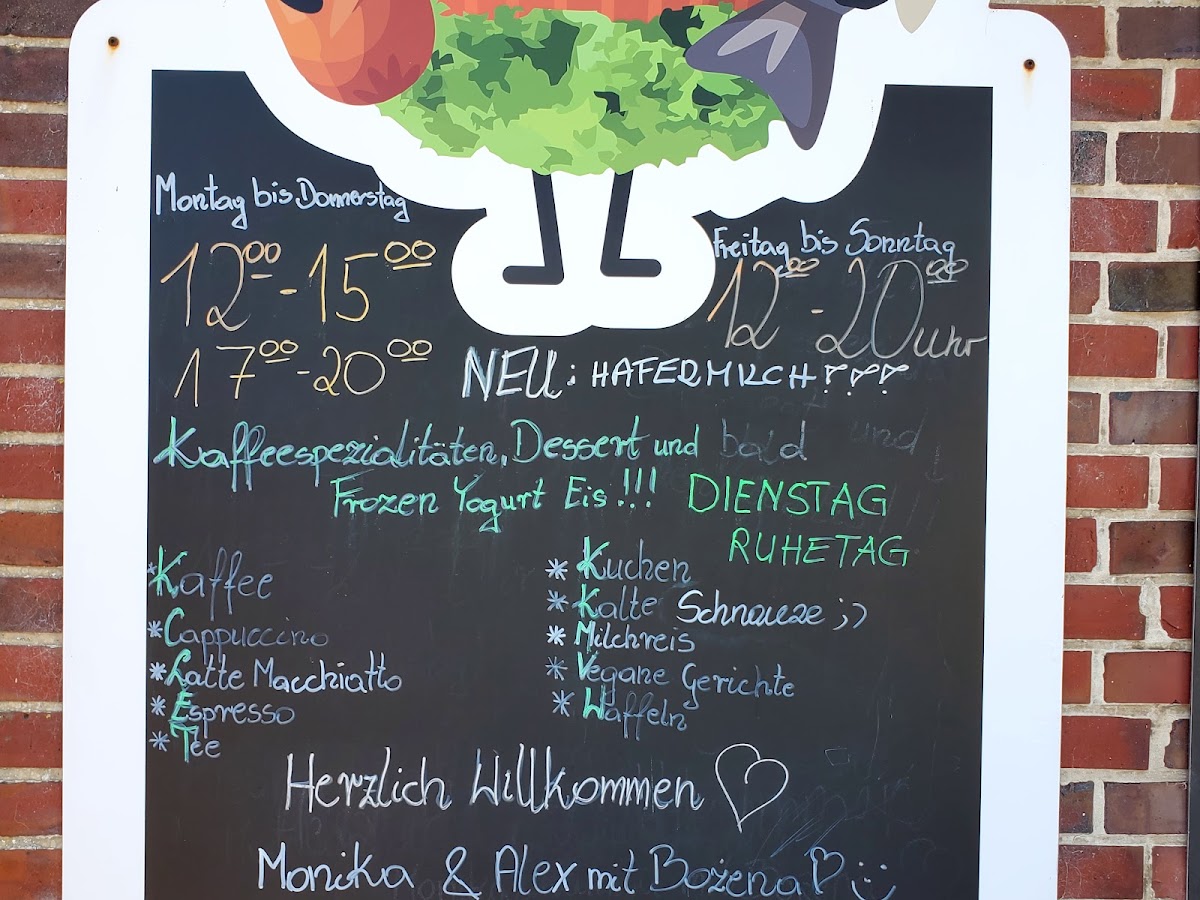 Montag bis Donnerstag
12⁰⁰-15⁰⁰
17⁰⁰-20⁰⁰
Freitag bis Sonntag
12⁰⁰-20⁰⁰ Uhr
NEU: HAFERMILCH!!!
Kaffeespezialitäten, Dessert und bald
Frozen Yogurt Eis!!!
DIENSTAG
RUHETAG
*Kaffee
*Cappuccino
*Latte Macchiatto
*Espresso
*Tee
*Kuchen
*Kalte Schnauze ;)
*Milchreis
*Vegane Gerichte
*Waffeln
Herzlich Willkommen ♡
Monika & Alex mit Bożena ♡ :)